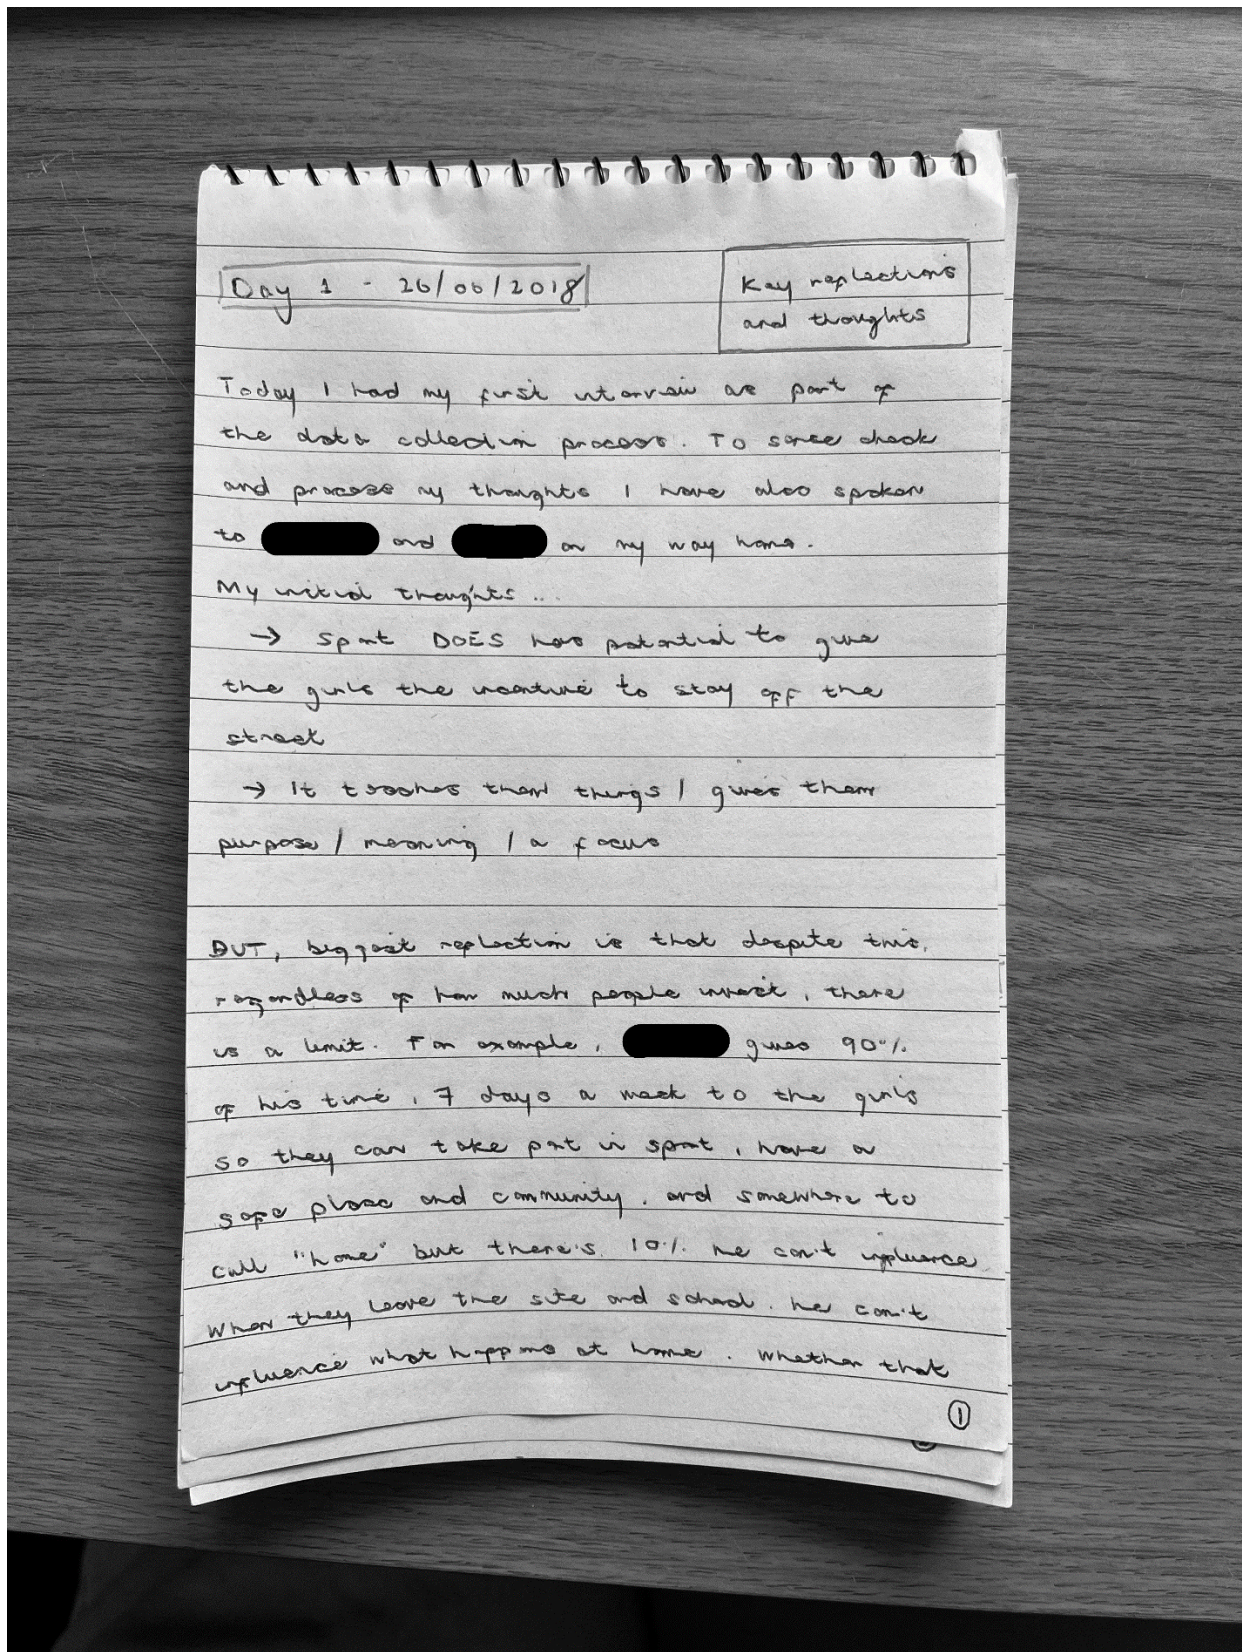 Day 1 - 26/06/2018
Key reflections
and thoughts
Today I had my first interview as part of
the data collection process. To sense check
and process my thoughts I have also spoken
to and on my way home.
My initial thoughts...
→ Sport DOES has potential to give
the girls the incentive to stay off the
street
→ It teaches them things / gives them
purpose / meaning / a focus
BUT, biggest reflection is that despite this,
regardless of how much people invest, there
is a limit. For example, gives 90%
of his time, 7 days a week to the girls
so they can take part in sport, have a
safe place and community, and somewhere to
call "home" but there's 10% he can't influence
when they leave the site and school. He can't
influence what happens at home. Whether that
1